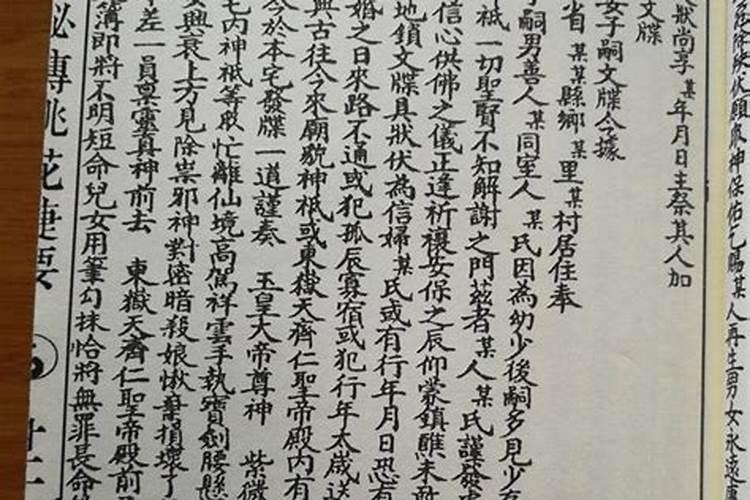 伏願眾神保佑乞賜某人再生男女永遠
狀尚享某年月日主祭其人加
文牒
女子嗣文牒令據
省某某縣鄉某里某村居住奉
嗣男善人某同室人某氏因為幼少後嗣多見少存
祇一切聖賢不知解謝之門茲者某人某氏謹發
信心供佛之儀正逢祈禳安保之辰仰蒙鎮醮未敢
地鎖文牒具狀伏為信婦某氏或有行年月日恐有
婚之日來路不通或犯孤辰寡宿或犯行年太歲送
與古往今來廟貌神祇或東嶽天齊仁聖帝殿內有
今於本宅發牒一道謹奏 玉皇大帝尊神 紫微
宅內神祇等敢忙離仙境高駕祥雲手執寶劍腰懸
興衰上方見除祟邪神對密暗殺娘愀棄損壞了
差一員稟靈真神前去 東嶽天齊仁聖帝殿前
簿即將不明短命兒女用筆勾抹恰將無罪長命
秘傳桃花捷要